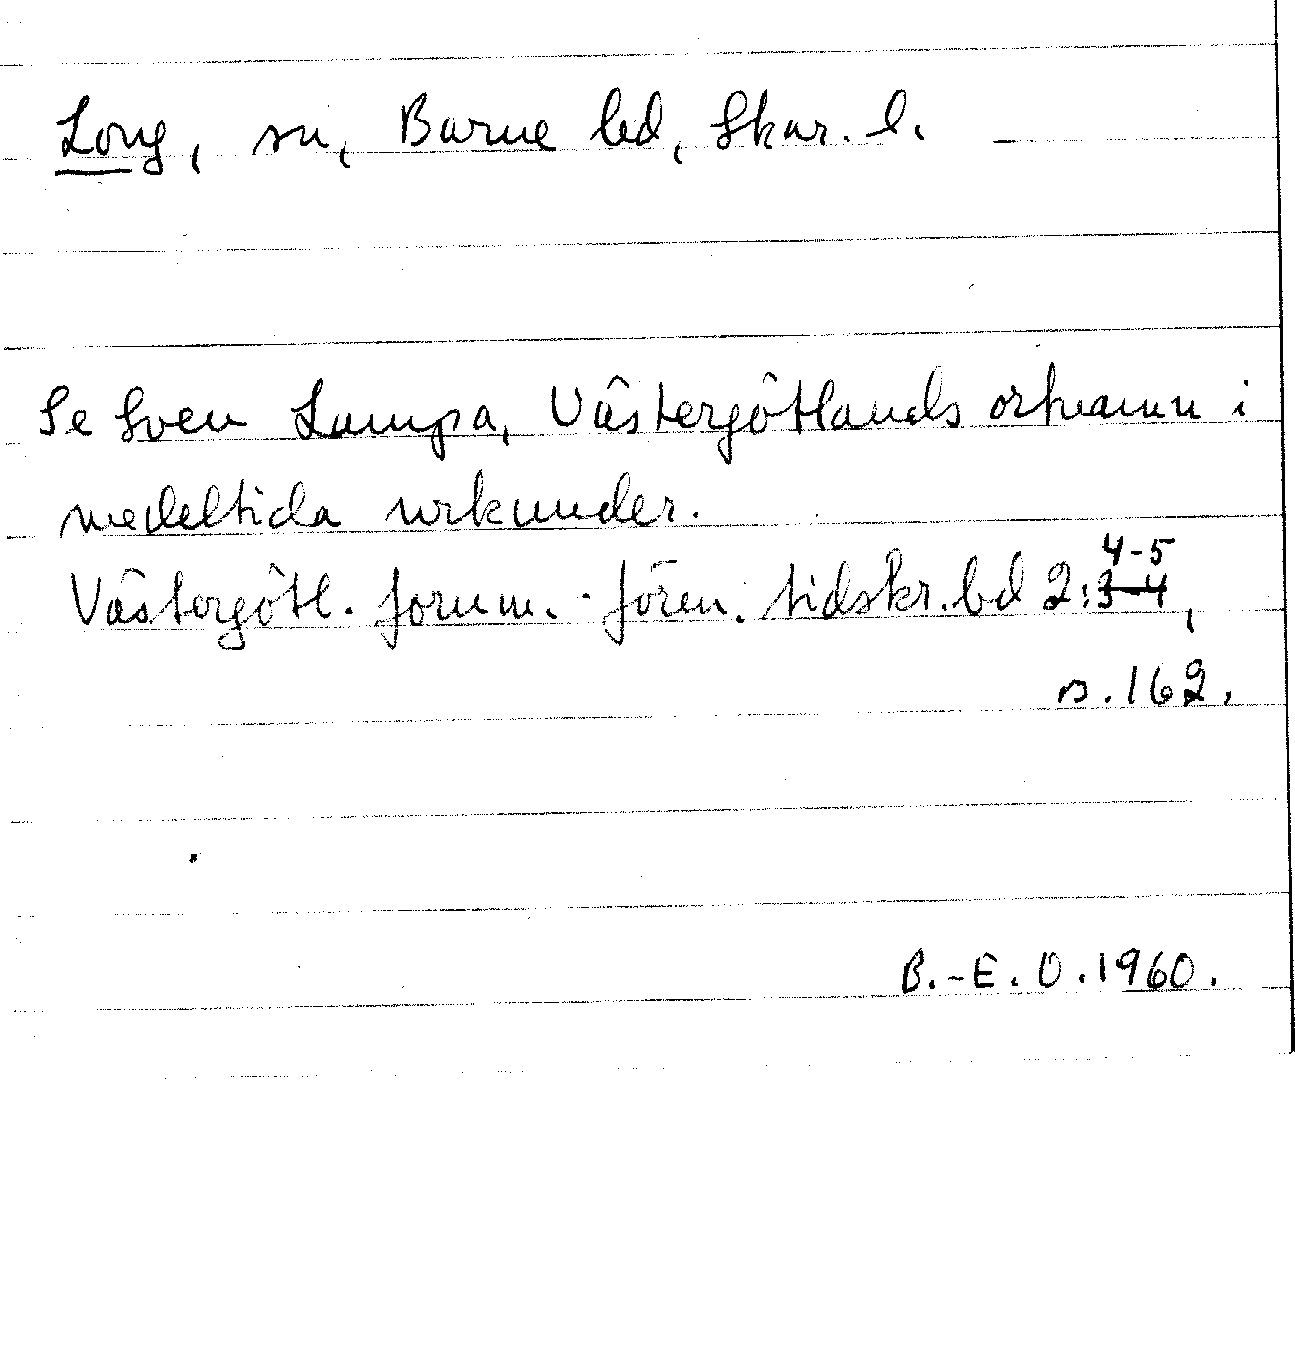 Long, sn, Barne hd, Skar. l.
Se Sven Lampa, Västergötlands ortnamn i
medeltida urkunder.
Västergötl. fornm.-fören. tidskr. bd 2:3-4 4-5,
s. 162.
B.-E. O. 1960.